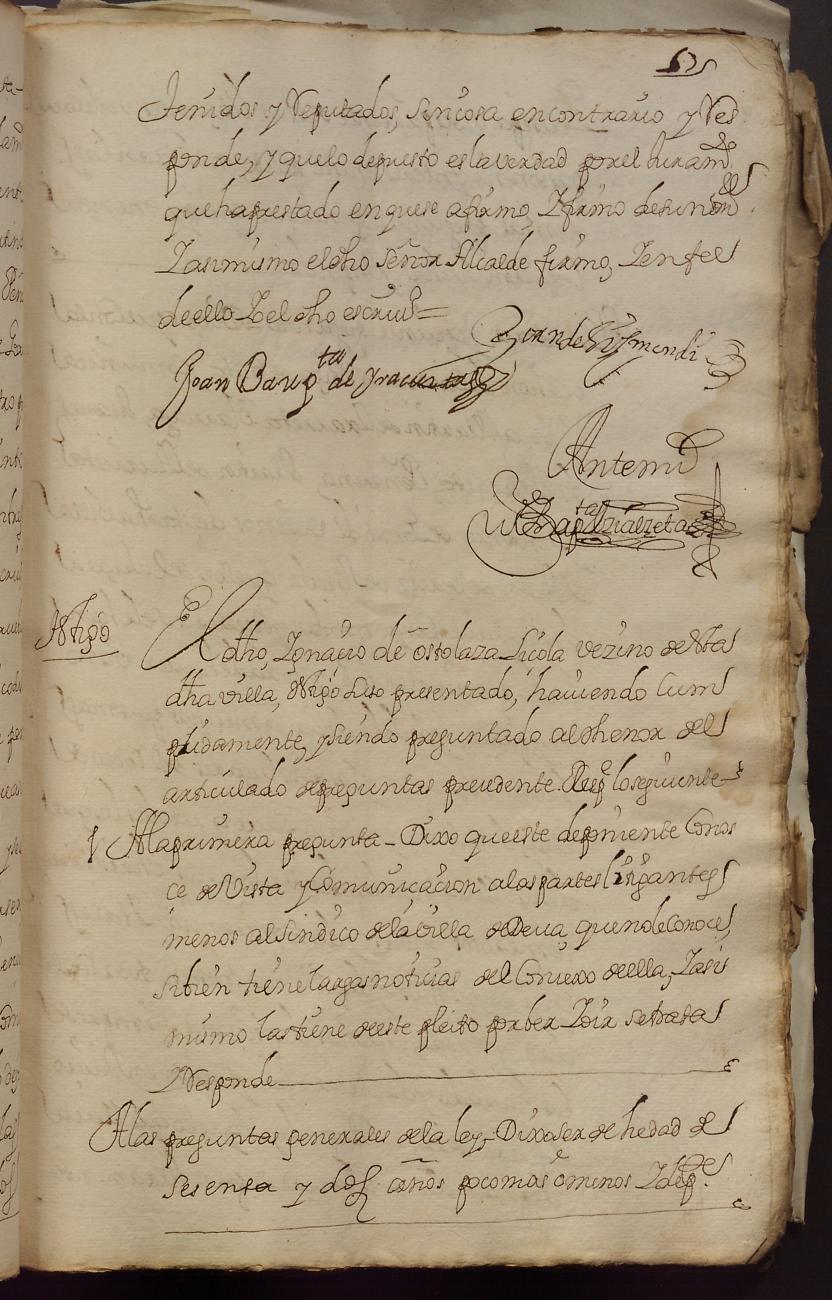 tenidos y Reputados, sin cosa en contrario y Res
ponde, y que lo depuesto es la verdad por el Juram.to
que ha prestado en que se afirmo, Y firmo de su n.re
Y asimismo el dho señor Alcalde firmo, Y en fee
de ello Yo el dho escriu.o =
Juan de Gusmendi
Joan Baup.ta de
Antemi
Bap.ta
Ttigo
El dho, Ygnacio de ostolaza Licola vezino de Esta
dha villa, ttigo Asi presentado, hauiendo Jurado cum
plidamente, y siendo preguntado al thenor del
articulado de preguntas precedente. Resp.e lo seguiente
1 A la primera pregunta - Dixo que este deponiente Conos
ce de Vista y Comunicacion a las partes litigantes
menos al Sindico de la villa de Deua, que no le Conoce,
si bien tiene largas noticias del Concexo de ella, Y asi
mismo las tiene de este pleito por ber Y oir se trata
Y Responde
A las preguntas generales de la ley - Dixo ser de hedad de
sesenta y dos años poco mas o menos Y Resp.de